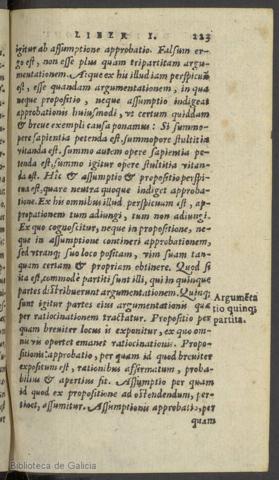 LIBER I. 223
igitur ab assumptione approbatio. Falsum er-
go est, non esse plus quam tripartitam argu-
mentationem. Atque ex his illud iam perspicuũ
est, esse quandam argumentationem, in qua
neque propositio, neque assumptio indigeat
approbationis huiusmodi, vt certum quiddam
& breue exempli causa ponamus: Si summo-
pere sapientia petenda est, summopere stultitia
vitanda est. summo autem opere sapientia pe-
tenda est, summo igitur opere stultitia vitan-
da est. Hîc & assumptio & propositio perspi-
cua est, quare neutra quoque indiget approba-
tione. Ex his omnibus illud perspicuum est, ap-
propationem tum adiungi, tum non adiungi.
Ex quo cognoscitur, neque in propositione, ne-
que in assumptione contineri approbationem,
sed vtranq; suo loco positam, vim suam tan-
quam certam & propriam obtinere. Quod si
ita est, commodè partiti sunt illi, qui in quinque
partes distribuerunt argumentationem. Quinq;
sunt igitur partes eius argumentationis quæ
per ratiocinationem tractatur. Propositio per
quam breuiter locus is exponitur, ex quo om-
nis vis oportet emanet ratiocinationis. Propo-
sitionis approbatio, per quam id quod breuiter
expositum est, rationibus affirmatum, proba-
bilius & apertius fit. Assumptio per quam
id quod ex propositione ad ostendendum, per-
tinet, assumitur. Assumptionis approbatio, per
quam
Argumẽta
tio quinq;
partita.
Biblioteca de Galicia